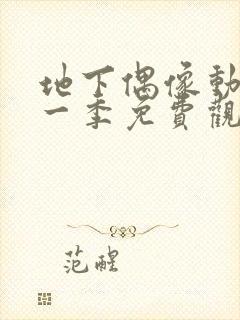 地下偶像動
一季免費觀
范醒